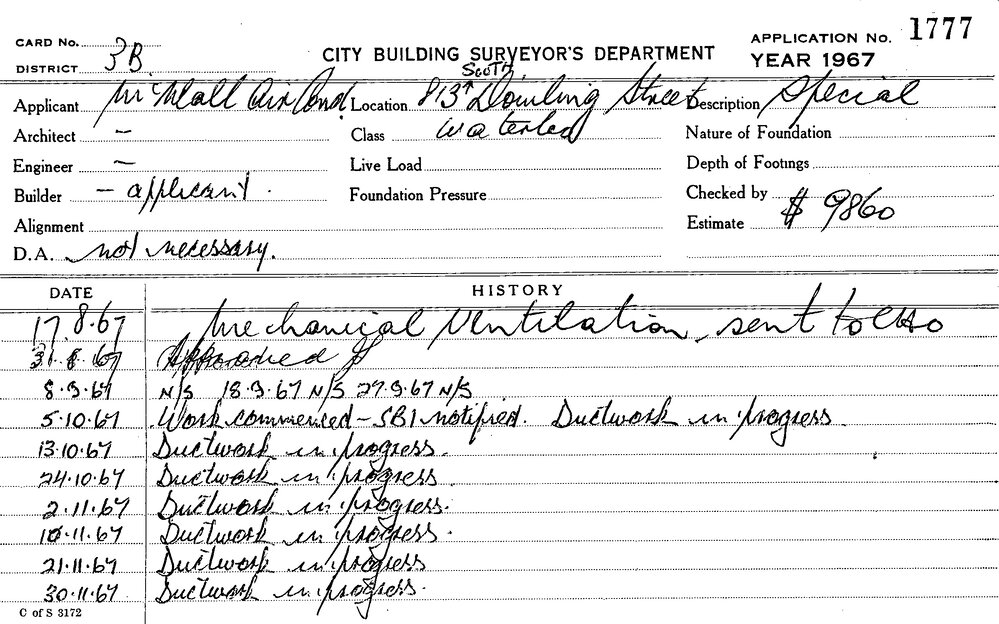 CARD No.
DISTRICT 3B
CITY BUILDING SURVEYOR'S DEPARTMENT
APPLICATION No. 1777
YEAR 1967
Applicant Air Cond. Location 813 SOUTH Dowling Street Description Special
Architect – Class Waterloo Nature of Foundation
Engineer – Live Load Depth of Footings
Builder – applicant. Foundation Pressure Checked by
Alignment Estimate $ 9860
D.A. not necessary.
DATE HISTORY
17.8.67 Mechanical Ventilation, sent to
31.8.67 Approved
8.9.67 N/S 18.9.67 N/S 27.9.67 N/S
5.10.67 Work commenced – SBI notified. Ductwork in progress
13.10.67 Ductwork in progress.
24.10.67 Ductwork in progress.
2.11.67 Ductwork in progress.
10.11.67 Ductwork in progress.
21.11.67 Ductwork in progress
30.11.67 Ductwork in progress.
C of S 3172